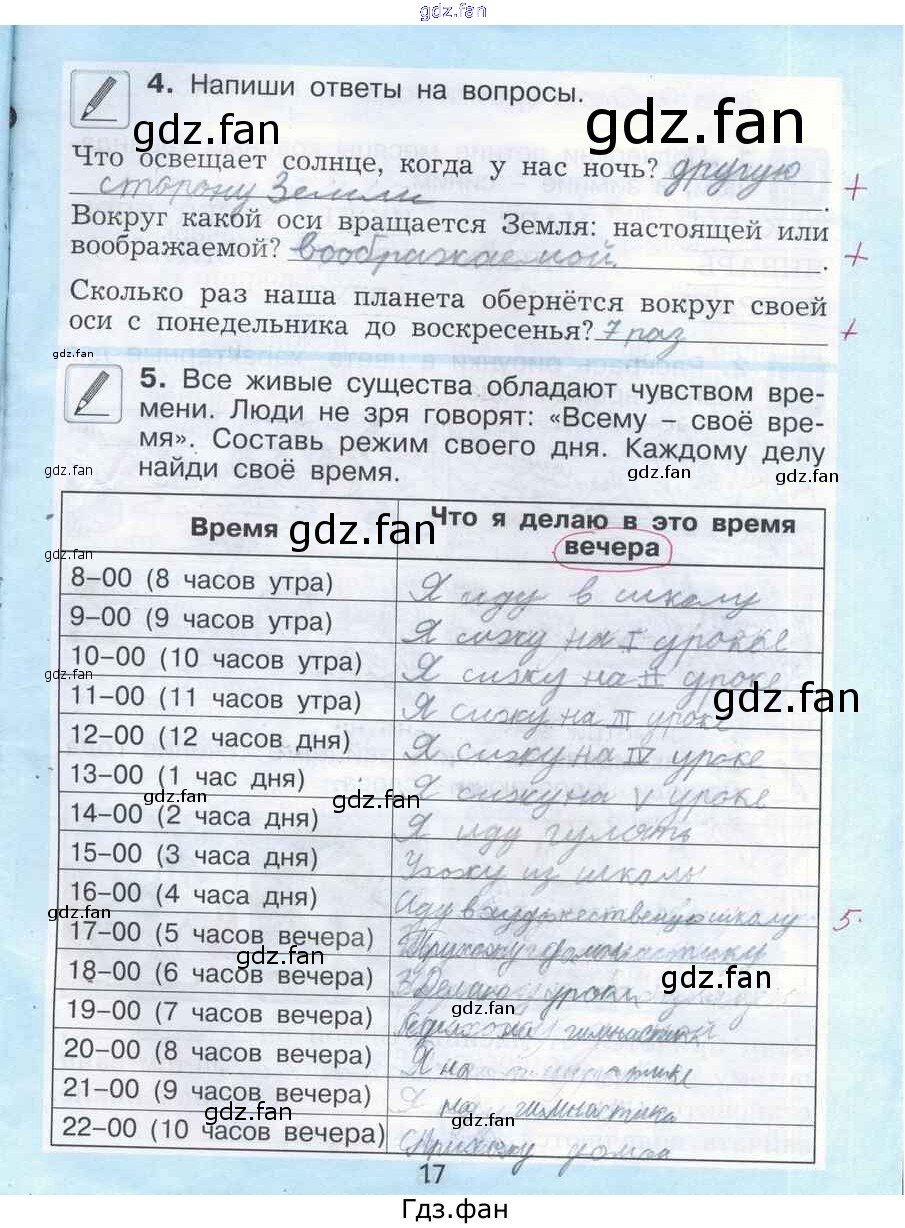 gdz.fan
4. Напиши ответы на вопросы.
gdz.fan
gdz.fan
Что освещает солнце, когда у нас ночь? другую
сторону Земли. +
Вокруг какой оси вращается Земля: настоящей или
воображаемой? воображаемой. +
Сколько раз наша планета обернётся вокруг своей
оси с понедельника до воскресенья? 7 раз +
gdz.fan
5. Все живые существа обладают чувством вре-
мени. Люди не зря говорят: «Всему – своё вре-
мя». Составь режим своего дня. Каждому делу
найди своё время.
gdz.fan
gdz.fan
gdz.fan
Время
gdz.fan
Что я делаю в это время
вечера
gdz.fan
8–00 (8 часов утра) Я иду в школу
9–00 (9 часов утра) Я сижу на I уроке
10–00 (10 часов утра) Я сижу на II уроке
gdz.fan
gdz.fan
11–00 (11 часов утра) Я сижу на III уроке
12–00 (12 часов дня) Я сижу на IV уроке
13–00 (1 час дня) Я сижу на V уроке
gdz.fan
gdz.fan
14–00 (2 часа дня) Я иду гулять
15–00 (3 часа дня) Ухожу из школы
16–00 (4 часа дня) Иду в художественную школу
gdz.fan
5.
17–00 (5 часов вечера) Прихожу домой
18–00 (6 часов вечера) Делаю уроки
gdz.fan
gdz.fan
gdz.fan
19–00 (7 часов вечера) на гимнастикой
20–00 (8 часов вечера) Я на
gdz.fan
21–00 (9 часов вечера) Я на гимнастике
gdz.fan
gdz.fan
22–00 (10 часов вечера) Прихожу домой
17
Гдз.фан